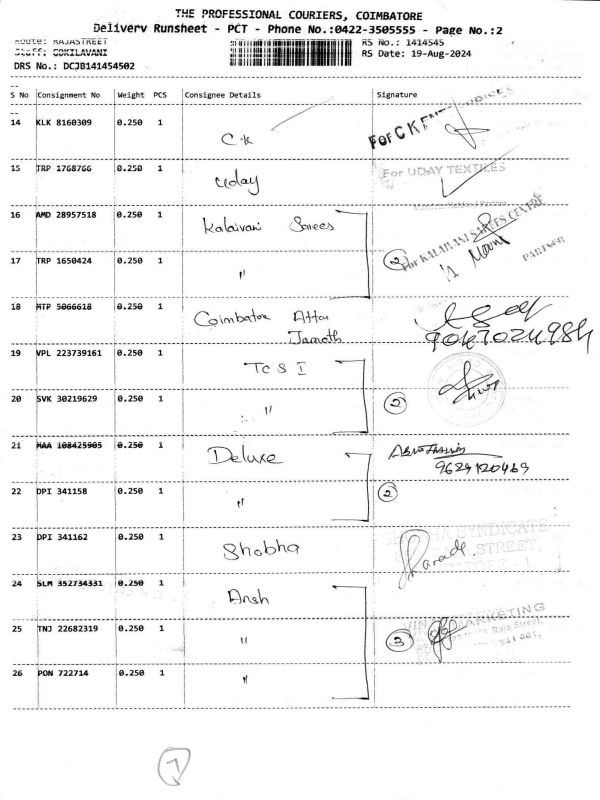 THE PROFESSIONAL COURIERS, COIMBATORE
Delivery Runsheet - PCT - Phone No.:0422-3505555 - Page No.:2
Route: RAJASTREET
RS No.: 1414545
Staff: GOKILAVANI
RS Date: 19-Aug-2024
DRS No.: DCJB141454502
S No Consignment No Weight PCS Consignee Details Signature
14 KLK 8160309 0.250 1 C.K For C K
15 TRP 1768766 0.250 1 Uday For UDAY TEXTILES
16 AMD 28957518 0.250 1 Kalaivani Sarees For KALAIVANI SAREES CENTRE
17 TRP 1650424 0.250 1 " 2 PARTNER
18 MTP 5066618 0.250 1 Coimbatore Attar Jamath
19 VPL 223739161 0.250 1 TCS I
20 SVK 30219629 0.250 1 " 2
21 MAA 108425905 0.250 1 Deluxe
22 DPI 341158 0.250 1 " 2
23 DPI 341162 0.250 1 Shobha SYNDICATE
STREET,
24 SLM 352734331 0.250 1 Ansh
MARKETING
25 TNJ 22682319 0.250 1 " 3 Raja Street,
26 PON 722714 0.250 1 "
7